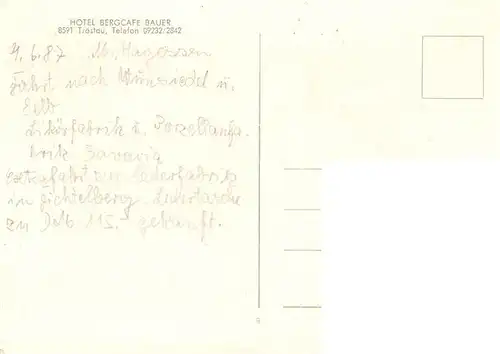 HOTEL BERGCAFE BAUER
8591 Tröstau, Telefon 09232/2842
4.6.87 M. Hagossen
Fahrt nach Wunsiedel u.
Selb
Likörfabrik u. Porzellanfa.
brik Bavaria
Extrafahrt zur Lederfabrik
in Fichtelberg. Ledertasche
zu DM 115.- gekauft.